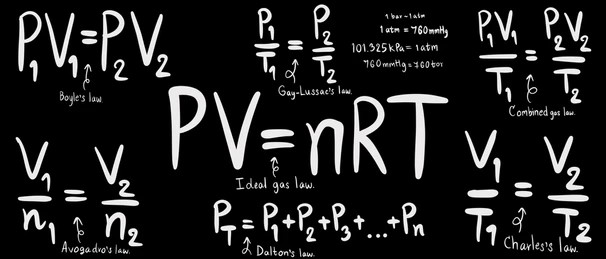 P₁V₁=P₂V₂
Boyle's law.
P₁/T₁ = P₂/T₂
Gay-Lussac's law.
1 bar~1atm
1 atm = 760mmHg
101.325 kPa = 1atm
760mmHg=760tor
P₁V₁/T₁ = P₂V₂/T₂
Combined gas law.
PV=nRT
Ideal gas law.
V₁/n₁ = V₂/n₂
Avogadro's law.
P_T = P₁+P₂+P₃+...+Pₙ
Dalton's law.
V₁/T₁ = V₂/T₂
Charles's law.